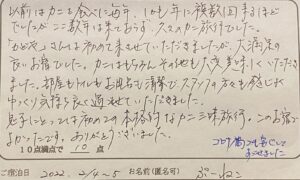 以前はカニを食べに毎年、しかも年に複数回来るほど
でしたがここ数年は来ておらず、久々のカニ旅行でした。
さんは初めて来させていただきましたが、大満足の
良いお宿でした。カニはもちろんその他も大変美味しくいただき
ました。部屋もトイレもお風呂も清潔でスタッフの方々も感じ良く
ゆっくり気持ち良く過ごせていただきました。
息子にとっては初めての本格的なカニ三昧旅行。このお宿で
よかったです。ありがとうございました。
コロナ禍でも安心して
すごせました
10点満点で 10 点！
ご宿泊日 2022. 2/4~5 お名前(匿名可) ぷーねこ